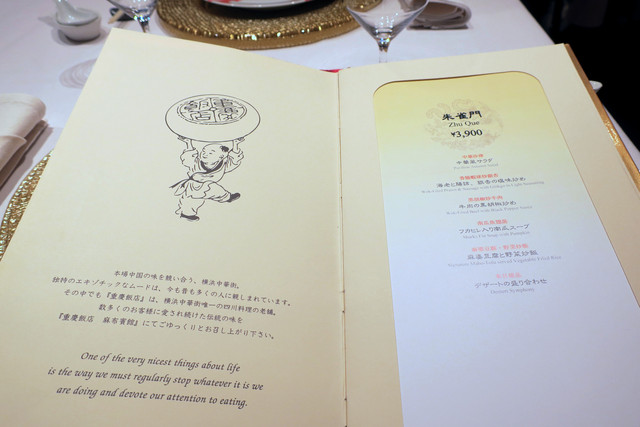 本場中国の味を競い合う、横浜中華街。
独特のエキゾチックなムードは、今も昔も多くの人に親しまれています。
その中でも『重慶飯店』は、横浜中華街唯一の四川料理の老舗。
数多くのお客様に愛され続けた伝統の味を
『重慶飯店 麻布賓館』にてごゆっくりとお召し上がり下さい。
One of the very nicest things about life
is the way we must regularly stop whatever it is we
are doing and devote our attention to eating.
朱雀門
Zhu Que
¥3,900
中華風サラダ
牛肉の黒胡椒炒め
フカヒレ入り南瓜スープ
Sharks Fin Soup with Pumpkin
麻婆豆腐と野菜炒飯
デザートの盛り合わせ
Dessert Symphony